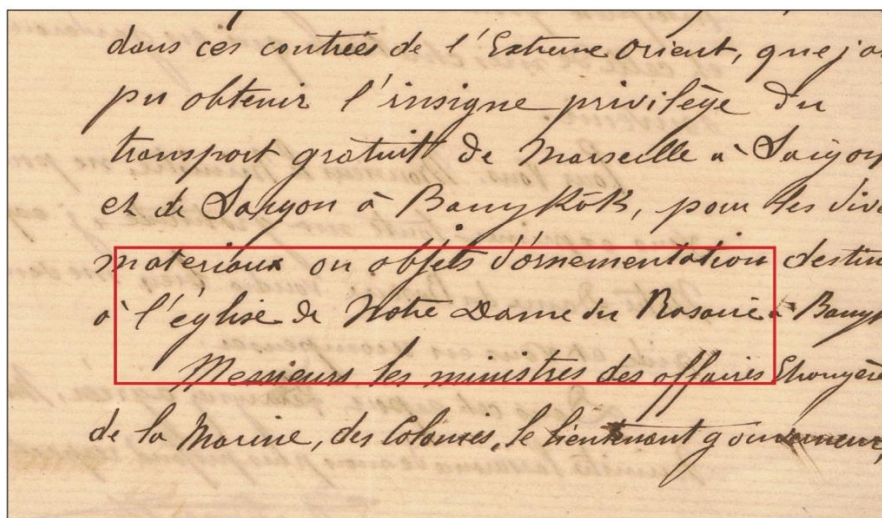 dans ces contrées de l'Extrême Orient, que j'ai
pu obtenir l'insigne privilège du
transport gratuit de Marseille à Saigon
et de Saïgon à Bangkok, pour les dive
materiaux ou objets d'ornementation destin
à l'église de Notre Dame du Rosaire à Bangk
Messieurs les ministres des affaires Etrangère
de la Marine, des Colonies, le lieutenant gouverneur,